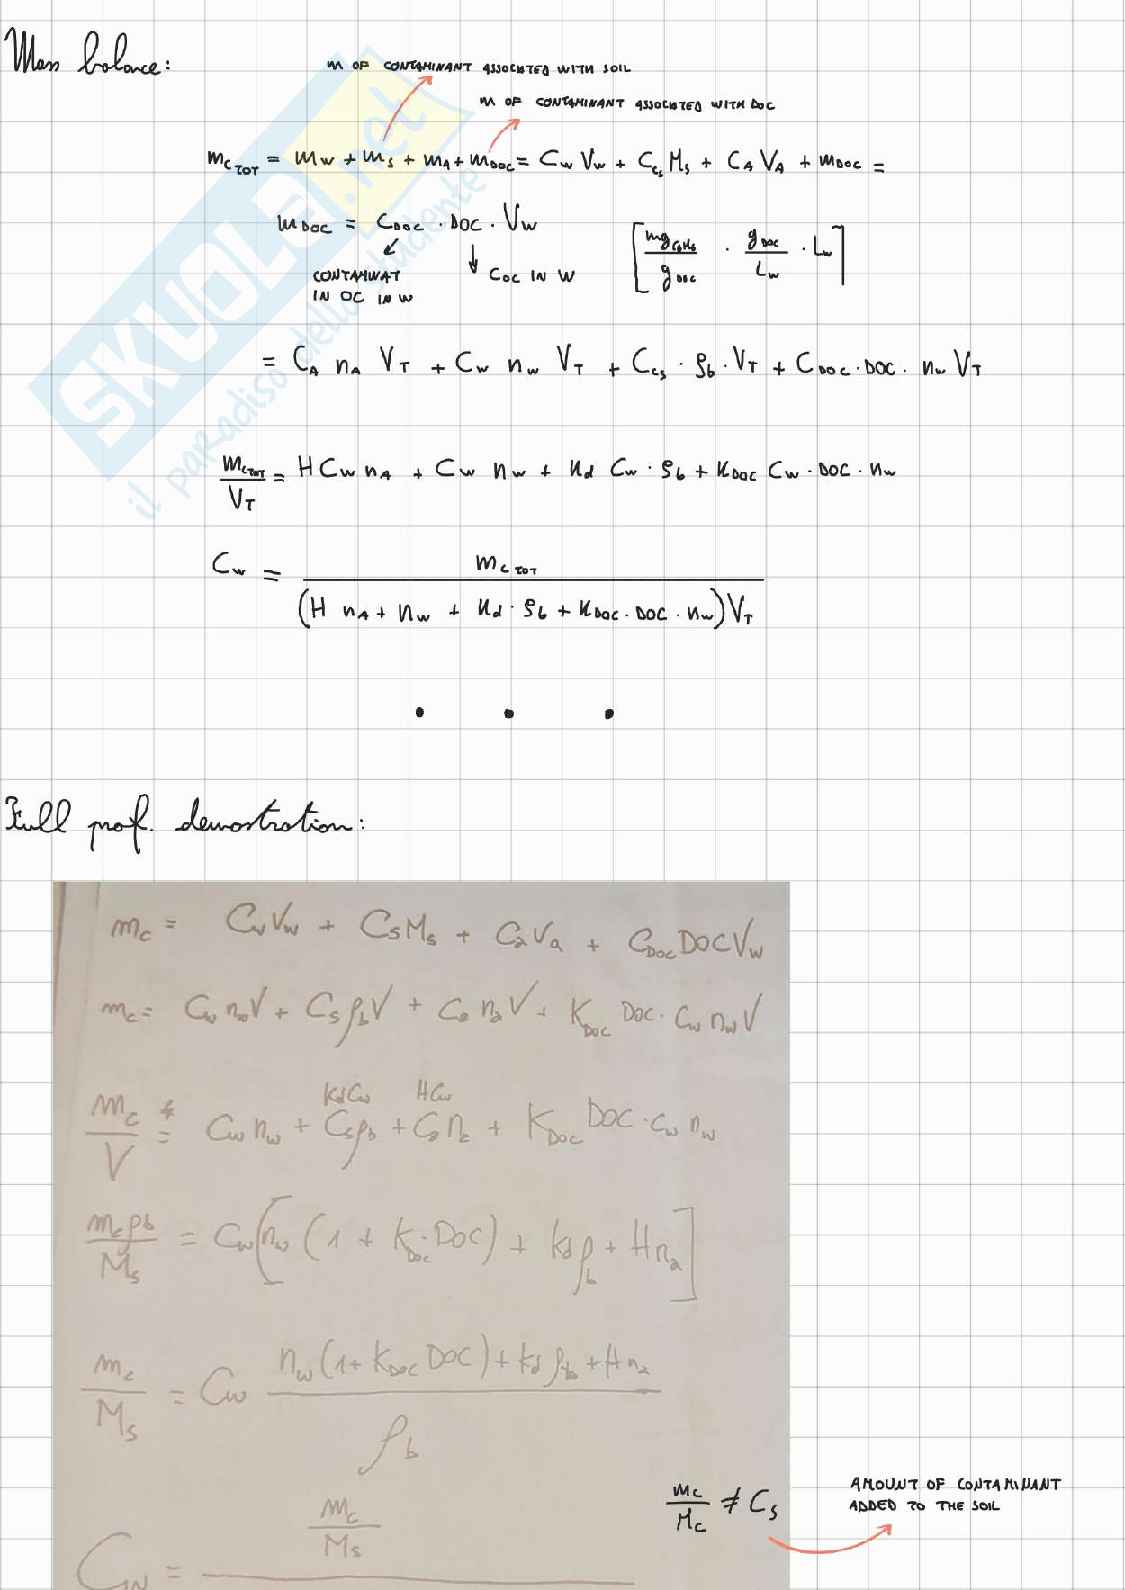 Mass balance:
m OF CONTAMINANT ASSOCIATED WITH SOIL
m OF CONTAMINANT ASSOCIATED WITH DOC
m_C TOT = m_W + m_S + m_A + m_DOC = C_W V_W + C_CS M_S + C_A V_A + m_DOC =
m_DOC = C_DOC · DOC · V_W [mg_C6H6 / g_DOC · g_DOC / L_W · L_W]
CONTAMINAT IN OC IN W
C_OC IN W
= C_A n_A V_T + C_W n_W V_T + C_CS · ρ_b · V_T + C_DOC · DOC · n_W V_T
m_C TOT / V_T = H C_W n_A + C_W n_W + K_d C_W · ρ_b + K_DOC C_W · DOC · n_W
C_W = m_C TOT / (H n_A + n_W + K_d · ρ_b + K_DOC · DOC · n_W) V_T
• • •
Full prof. demostration:
m_c = C_w V_w + C_S M_s + C_a V_a + C_DOC DOC V_w
m_c = C_w n_w V + C_S ρ_b V + C_a n_a V + K_DOC DOC · C_w n_w V
K_d C_w H C_w
m_c / V = C_w n_w + C_S ρ_b + C_a n_a + K_DOC DOC · C_w n_w
m_c ρ_b / M_s = C_w [n_w (1 + K_DOC · DOC) + K_d ρ_b + H n_a]
m_c / M_s = C_w n_w (1 + K_DOC DOC) + K_d ρ_b + H n_a / ρ_b
m_c / M_c ≠ C_s
AMOUNT OF CONTAMINANT
ADDED TO THE SOIL
C_W = m_c / M_s
SKUOLA.net
il paradiso dello studente